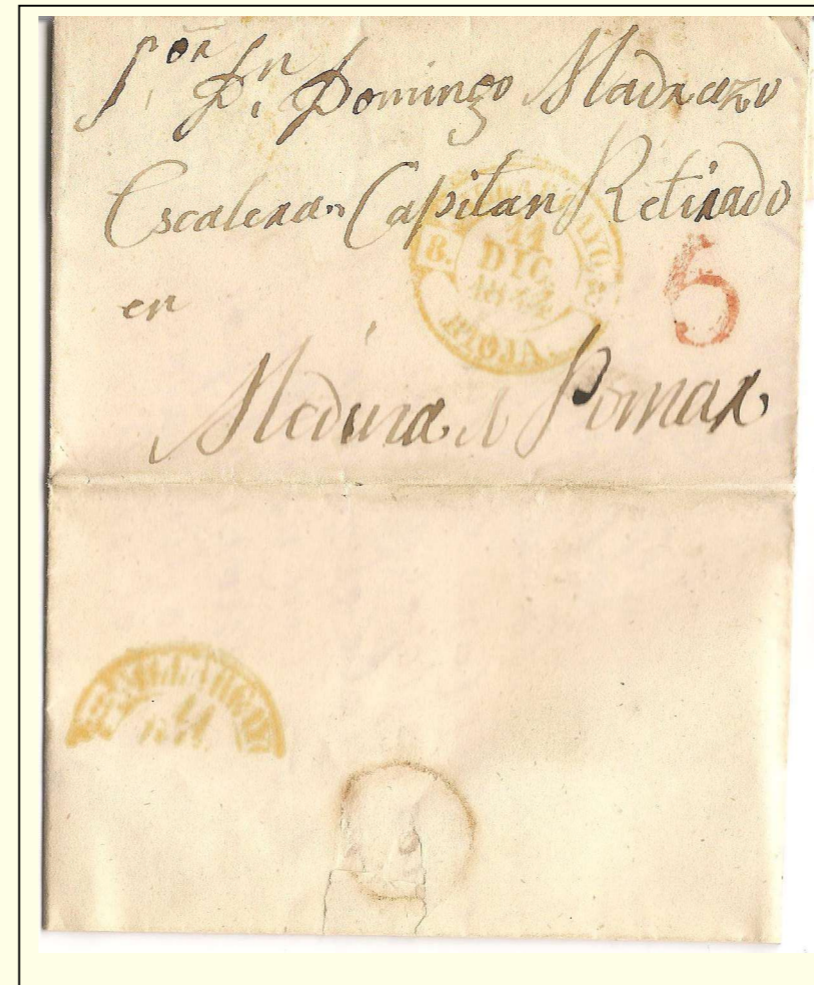 S.ᵒʳ D.ⁿ Domingo Madrazo
Escalera Capitan Retirado
en
Medina d Pomar
11
DIC.
8.
RIOJA.
5
11
DIC.